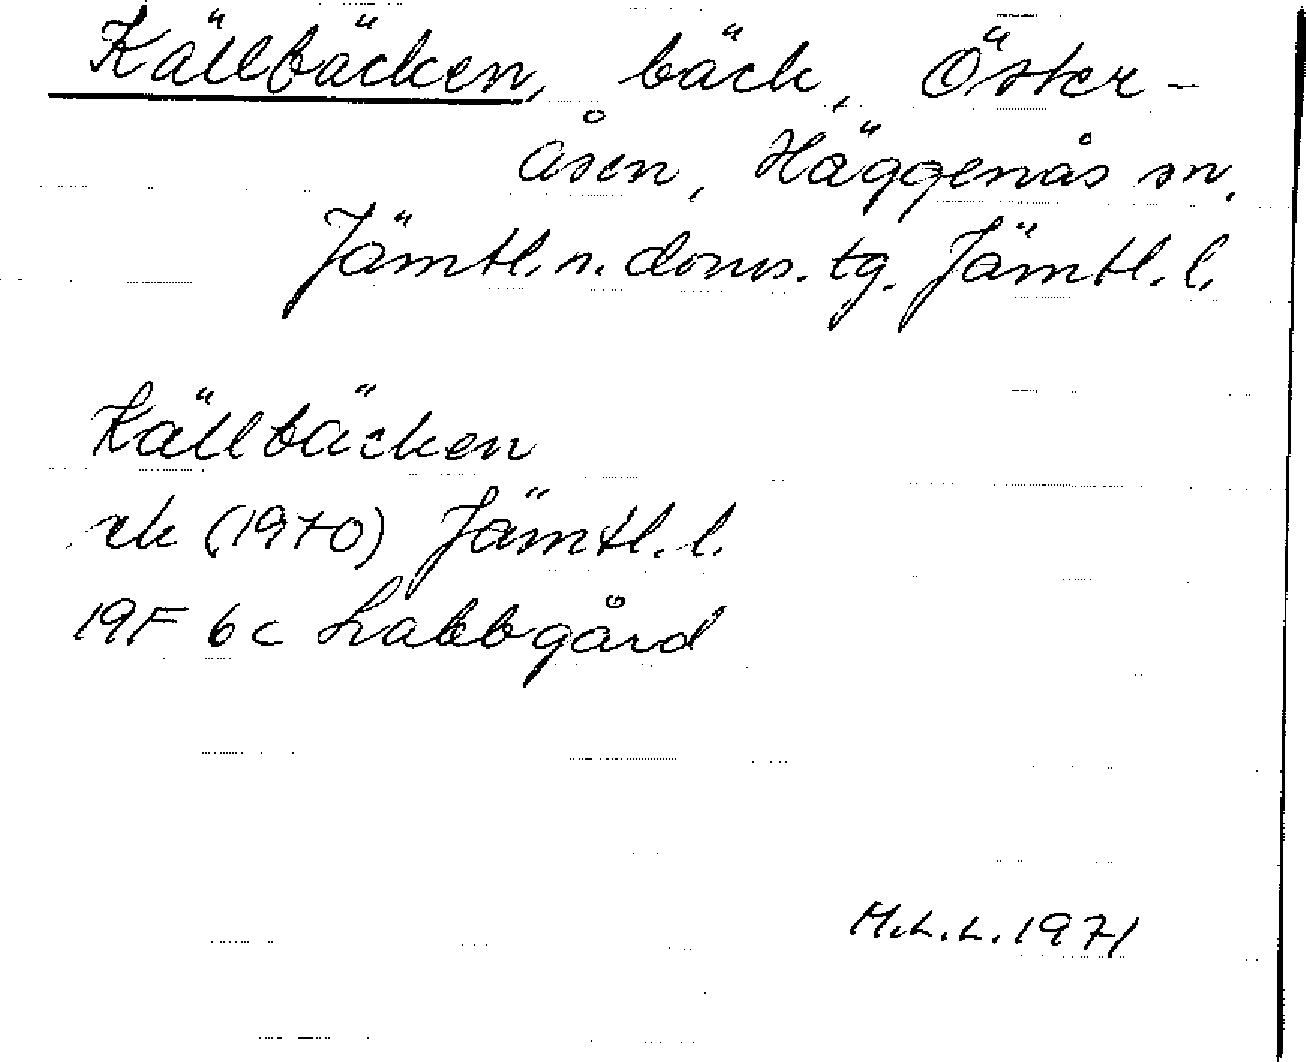 Källbäcken, bäck, Öster-
åsen, Häggenås sn,
Jämtl. n. doms. tg. Jämtl. l.
Källbäcken
rk (1970) Jämtl. l.
19F 6c Labbgård
M.L.L. 1971